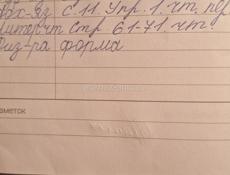 Рах-яз с 11. Упр. 1. чт. пер
Литерчт стр 61-71. чт.
Физ-ра форма
заметок